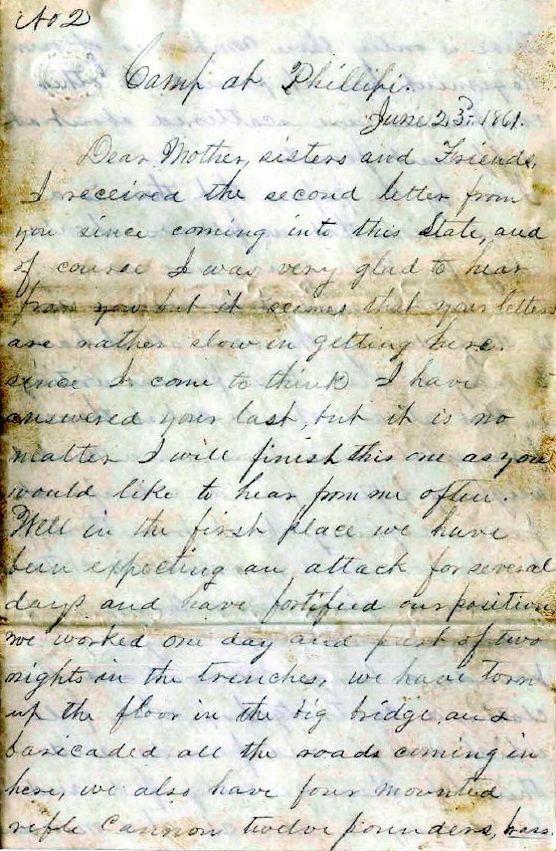 No 2
Camp at Phillipi.
June 23rd 1861.
Dear Mother, sisters and Friends,
I received the second letter from
you since coming into this State, and
of course I was very glad to hear
from you, but it seimes that your letters
are rather slow in getting here.
since I come to think I have
answered your last, but it is no
matter I will finish this one as you
would like to hear from me often.
Well in the first place we have
bun expecting an attack for several
days and have fortified our position
we worked one day and part of two
nights in the trenches, we have torn
up the floor in the big bridge and
baricaded all the roads coming in
here, we also have four mounted
rifle cannon twelve pounders, brass.